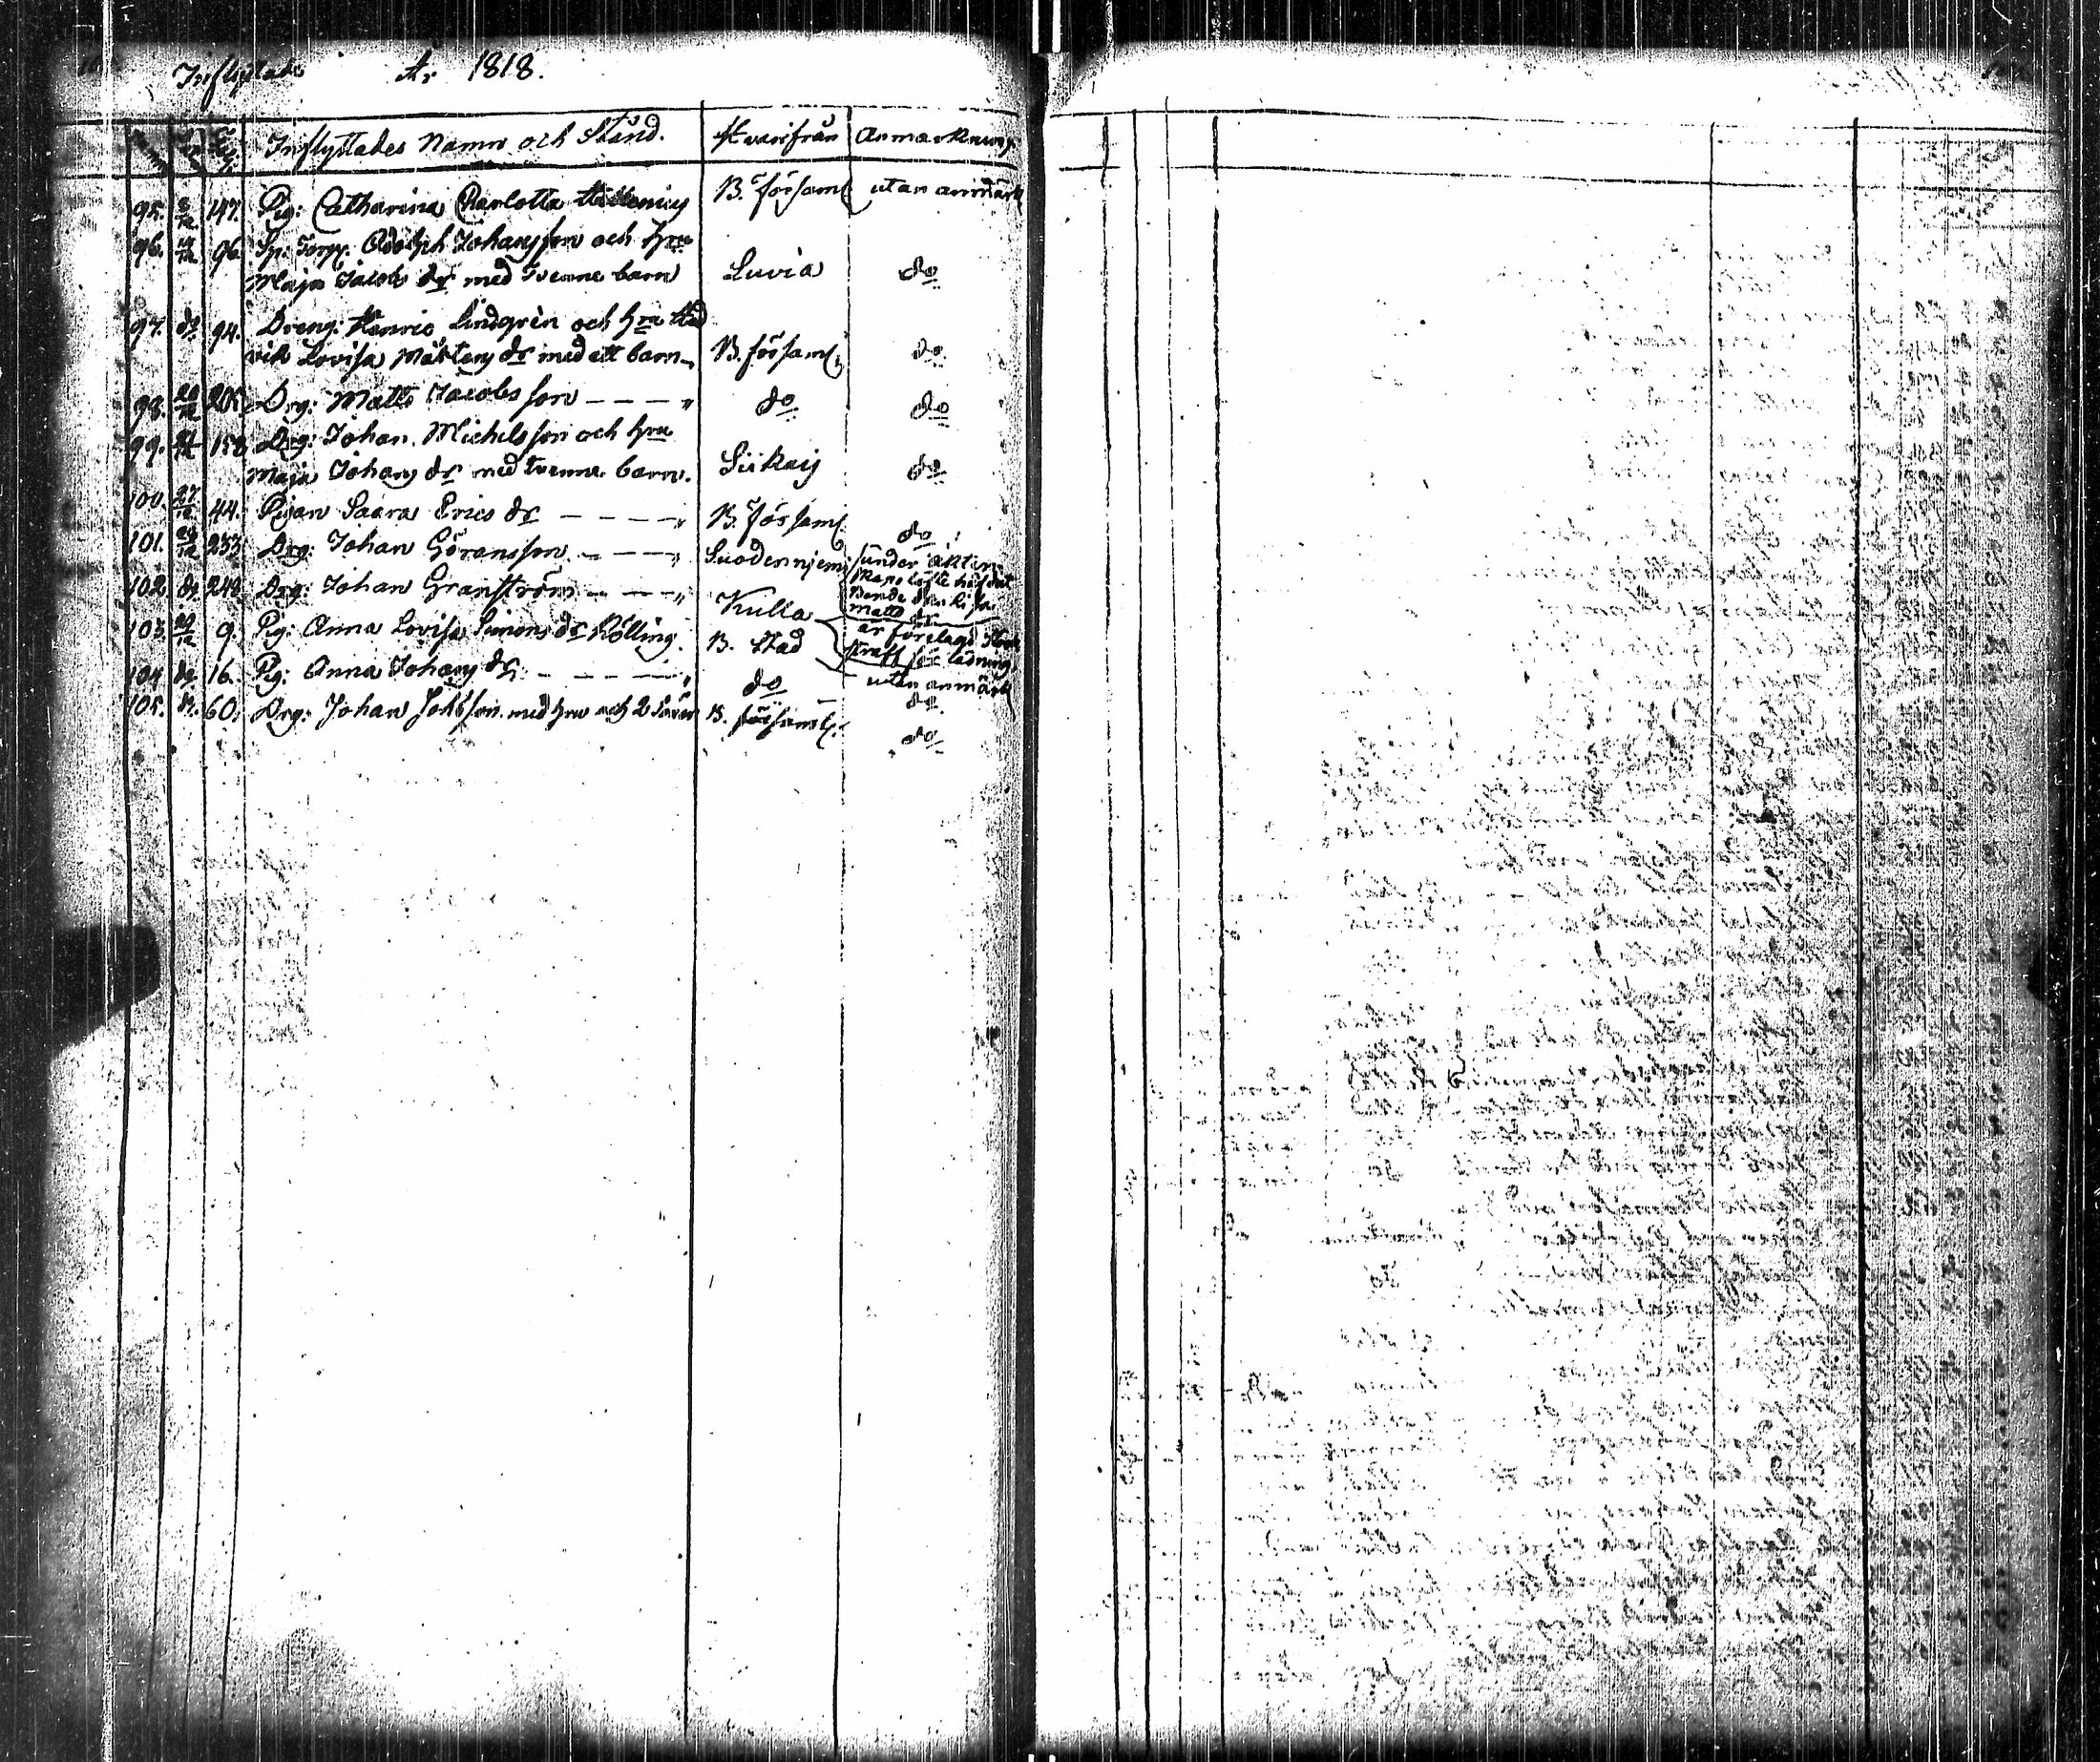 Inflyttade År 1818.
Inflyttades Namn och Stånd. Hvarifrån Anmärkning
95. 147. Pig: Catharina Charlotta B. församl utan anmärk
96. 96. Sp. Torp. Adolph Johansson och hru
Maja Jacobs dr med tvenne barn Luvia do
97. do 94. Dreng: Henric Lindgrèn och hru Hed
vik Lovisa Mårtens dr med ett barn B. församl. do
98. 20/12 205 Drg: Matts Jacobsson - - - " do do
99. 158 Drg: Johan Michelsson och hru
Maja Johans dr med tvenne barn. Siikais do
100. 27/12 44. Pigan Saara Erics dr - - - - " B. församl. do
101. 233 Drg: Johan Göransson - - - " Suodenniemi under äkten
102. do 249 Drg: Johan Granström - - - " Kulla
Matts dr
103. 29/12 9. Pig: Anna Lovisa Simons dr Kölling. B. Stad är förelagd
104 do 16. Pig: Anna Johans dr - - - - " do utan anmärk
105. do. 60. Drg: Johan Johsson med hru och 2 B. församl. do
do